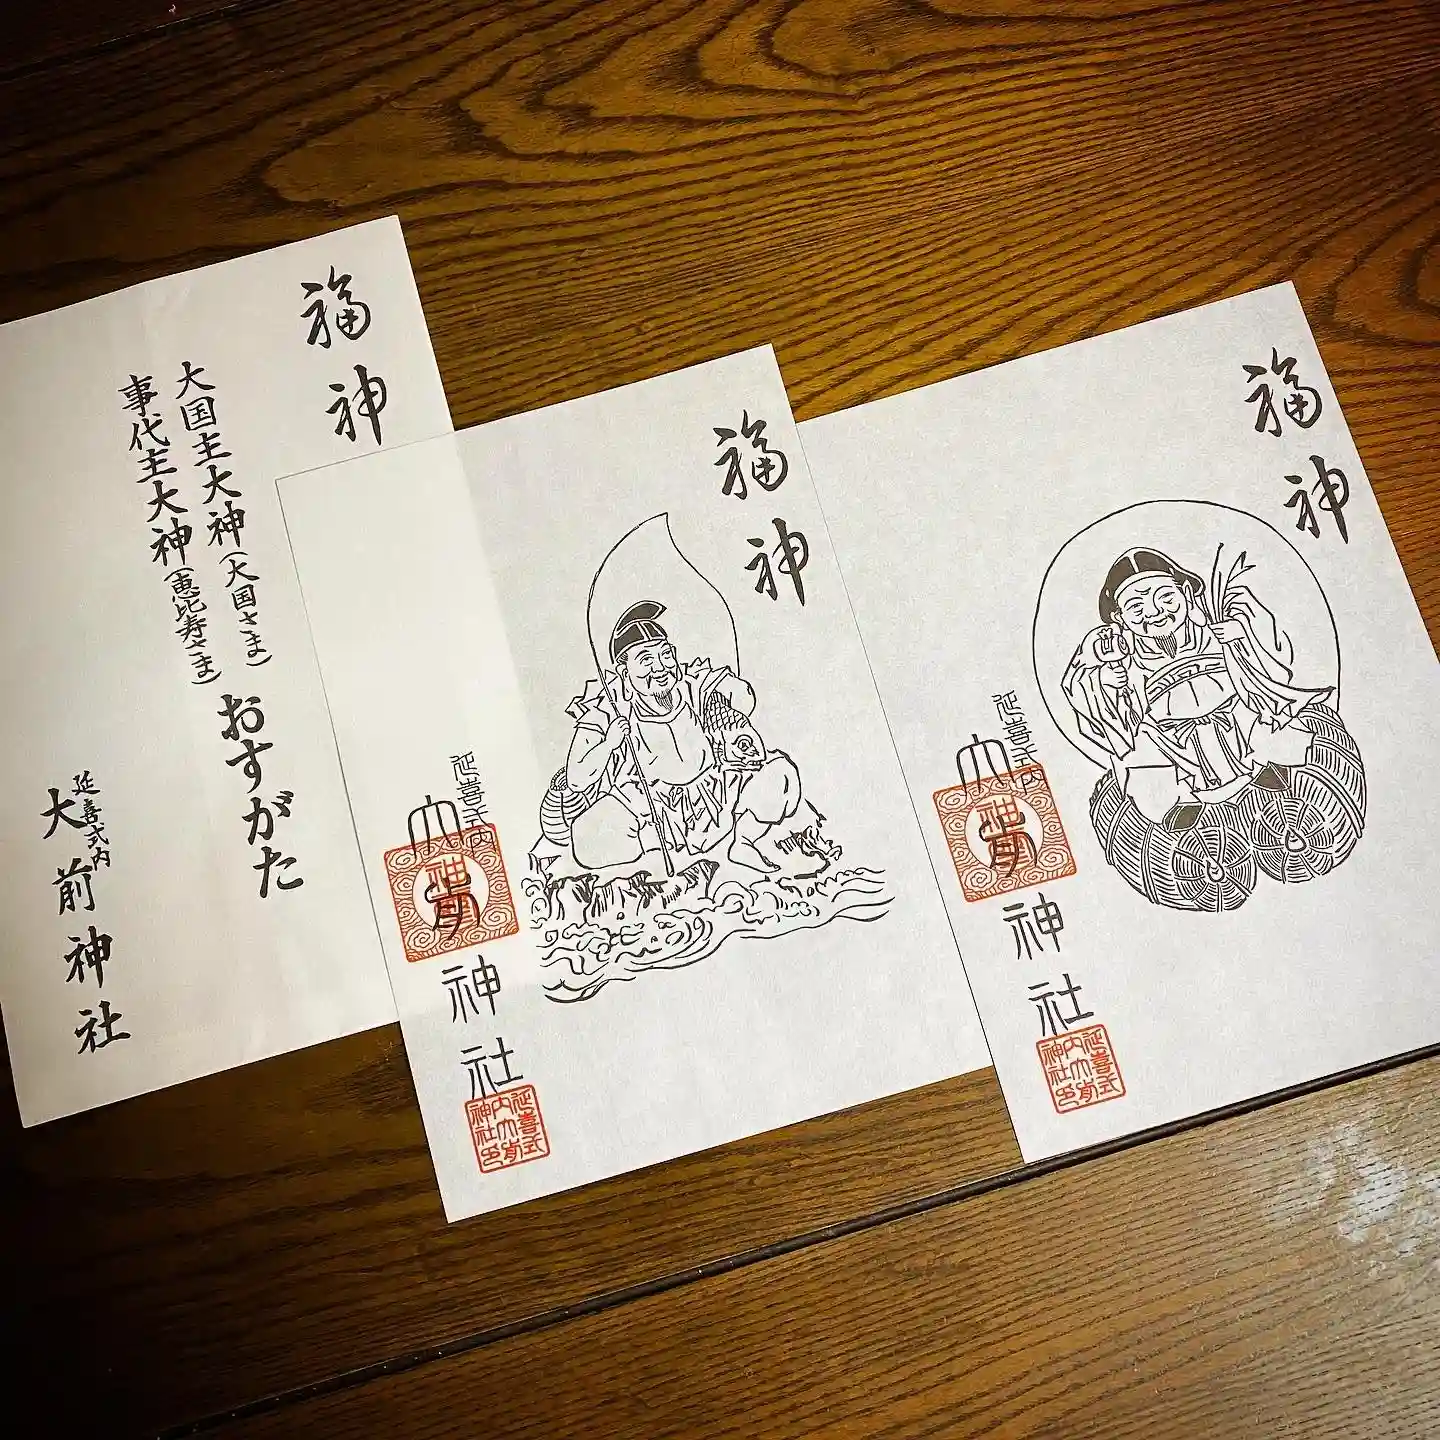 福神
大国主大神(大国さま)
事代主大神(恵比寿さま)
おすがた
延喜式内
大前神社
福神
延喜式内
大前神社
延喜式
内大前
神社印
福神
延喜式内
大前神社
延喜式
内大前
神社印